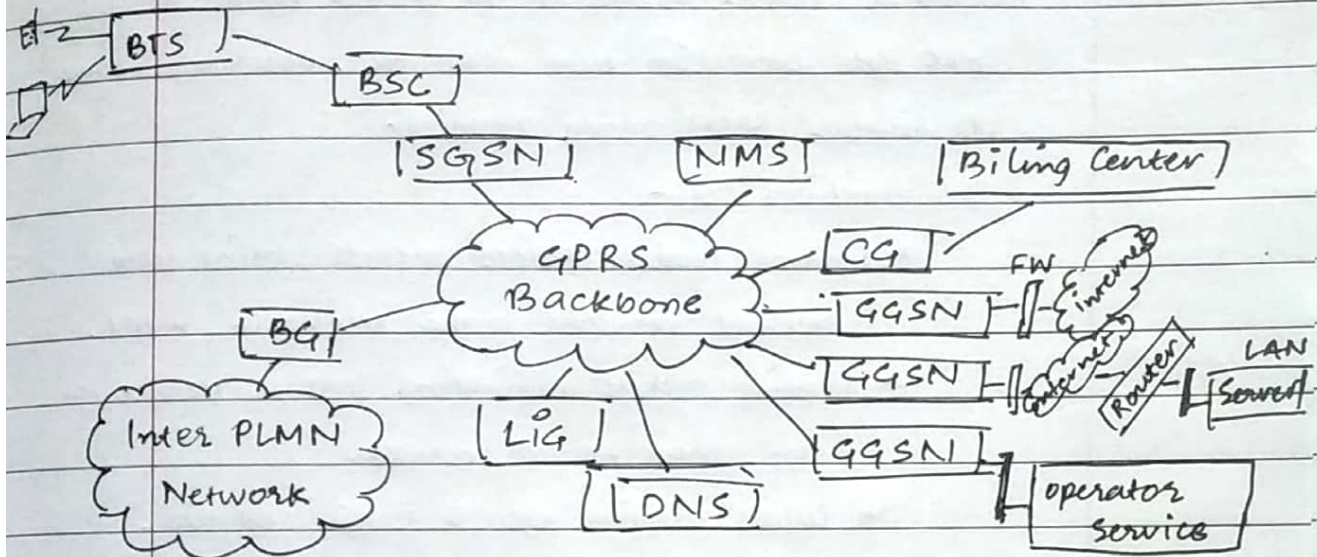 BTS
BSC
SGSN
NMS
Biling Center
GPRS
Backbone
CG
FW
internet
GGSN
BG
GGSN
internet
Router
LAN
Server
Inter PLMN
Network
LiG
DNS
GGSN
operator
service